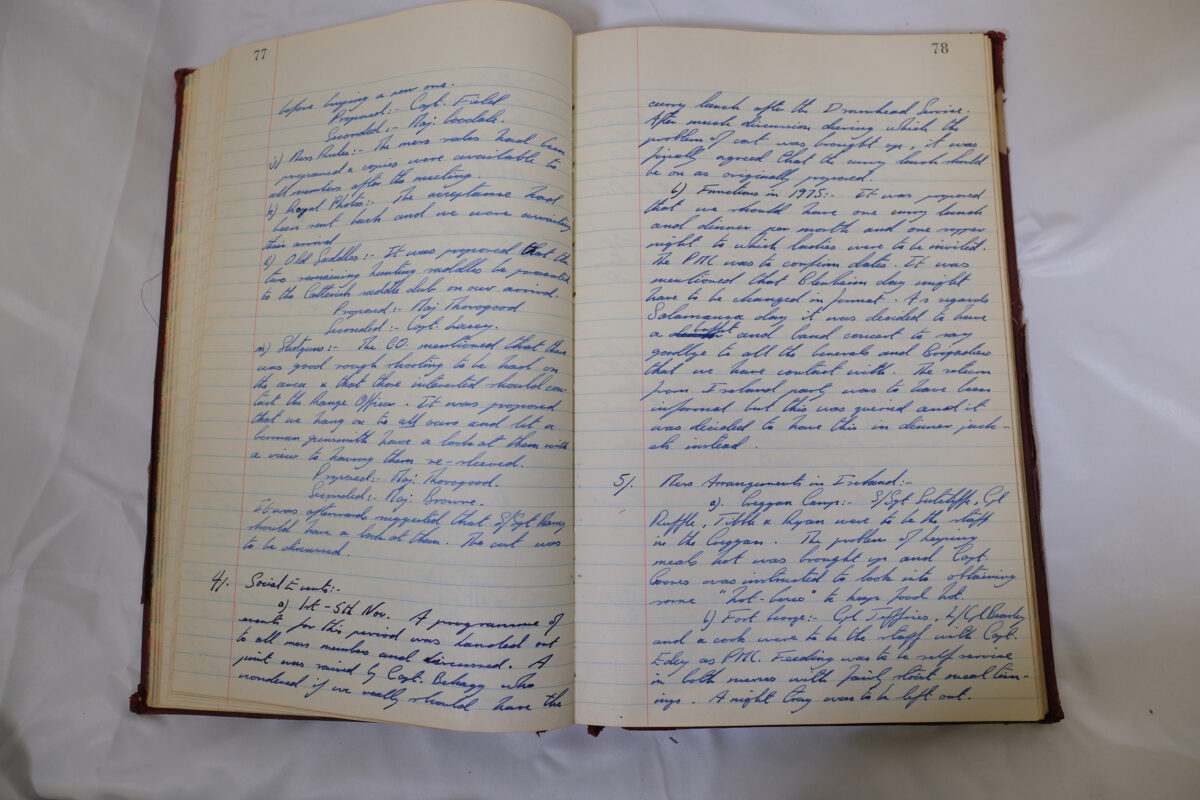 77
before buying a new one.
Proposed:- Capt. Field
Seconded:- Maj.
j) Mess Rules:- The mess rules had been
prepared & copies were available to
all members after the meeting.
k) Royal Photos:- The acceptance had
been sent back and we were awaiting
their arrival
l) Old Saddles:- It was proposed that the
two remaining hunting saddles be presented
to the Catterick saddle club on our arrival.
Proposed:- Maj Thorogood
Seconded:- Capt. Lacey.
m) Shotguns:- The CO. mentioned that there
was good rough shooting to be had on
the area & that those interested should con-
tact the Range Officer. It was proposed
that we hang on to all ours and let a
German gunsmith have a look at them with
a view to having them re-sleeved.
Proposed:- Maj. Thorogood.
Seconded:- Maj. Browne.
It was afterwards suggested that S/Sgt
should have a look at them. The cost was
to be discussed.
4/. Social Events:-
a) 1st - 5th Nov. A programme of
events for this period was handed out
to all mess members and discussed. A
point was raised by Capt. who
wondered if we really should have the
78
curry lunch after the Drumhead Service.
After much discussion during which the
problem of cost was brought up, it was
finally agreed that the curry lunch should
be on as originally proposed.
b) Functions in 1975:- It was proposed
that we should have one curry lunch
and dinner per month and one supper
night to which ladies were to be invited.
The PMC was to confirm dates. It was
mentioned that Blenheim day might
have to be changed in format. As regards
Salamanca day it was decided to have
a buffet and band concert to say
goodbye to all the Generals and Brigadiers
that we have contact with. The return
from Ireland party was to have been
informal but this was queried and it
was decided to have this in dinner jack-
ets instead.
5/. Mess Arrangements in Ireland:-
a). Creggan Camp:- S/Sgt Sutcliffe, Cpl
Ruffle, Tibble & Ryan were to be the staff
in the Creggan. The problem of keeping
meals hot was brought up and Capt.
was instructed to look into obtaining
some "hot-boxes" to keep food hot.
b) Fort George:- Cpl Jeffries, L/Cpl
and a cook were to be the staff with Capt.
Edey as PMC. Feeding was to be self service
in both messes with fairly strict meal tim-
ings. A night tray was to be left out.